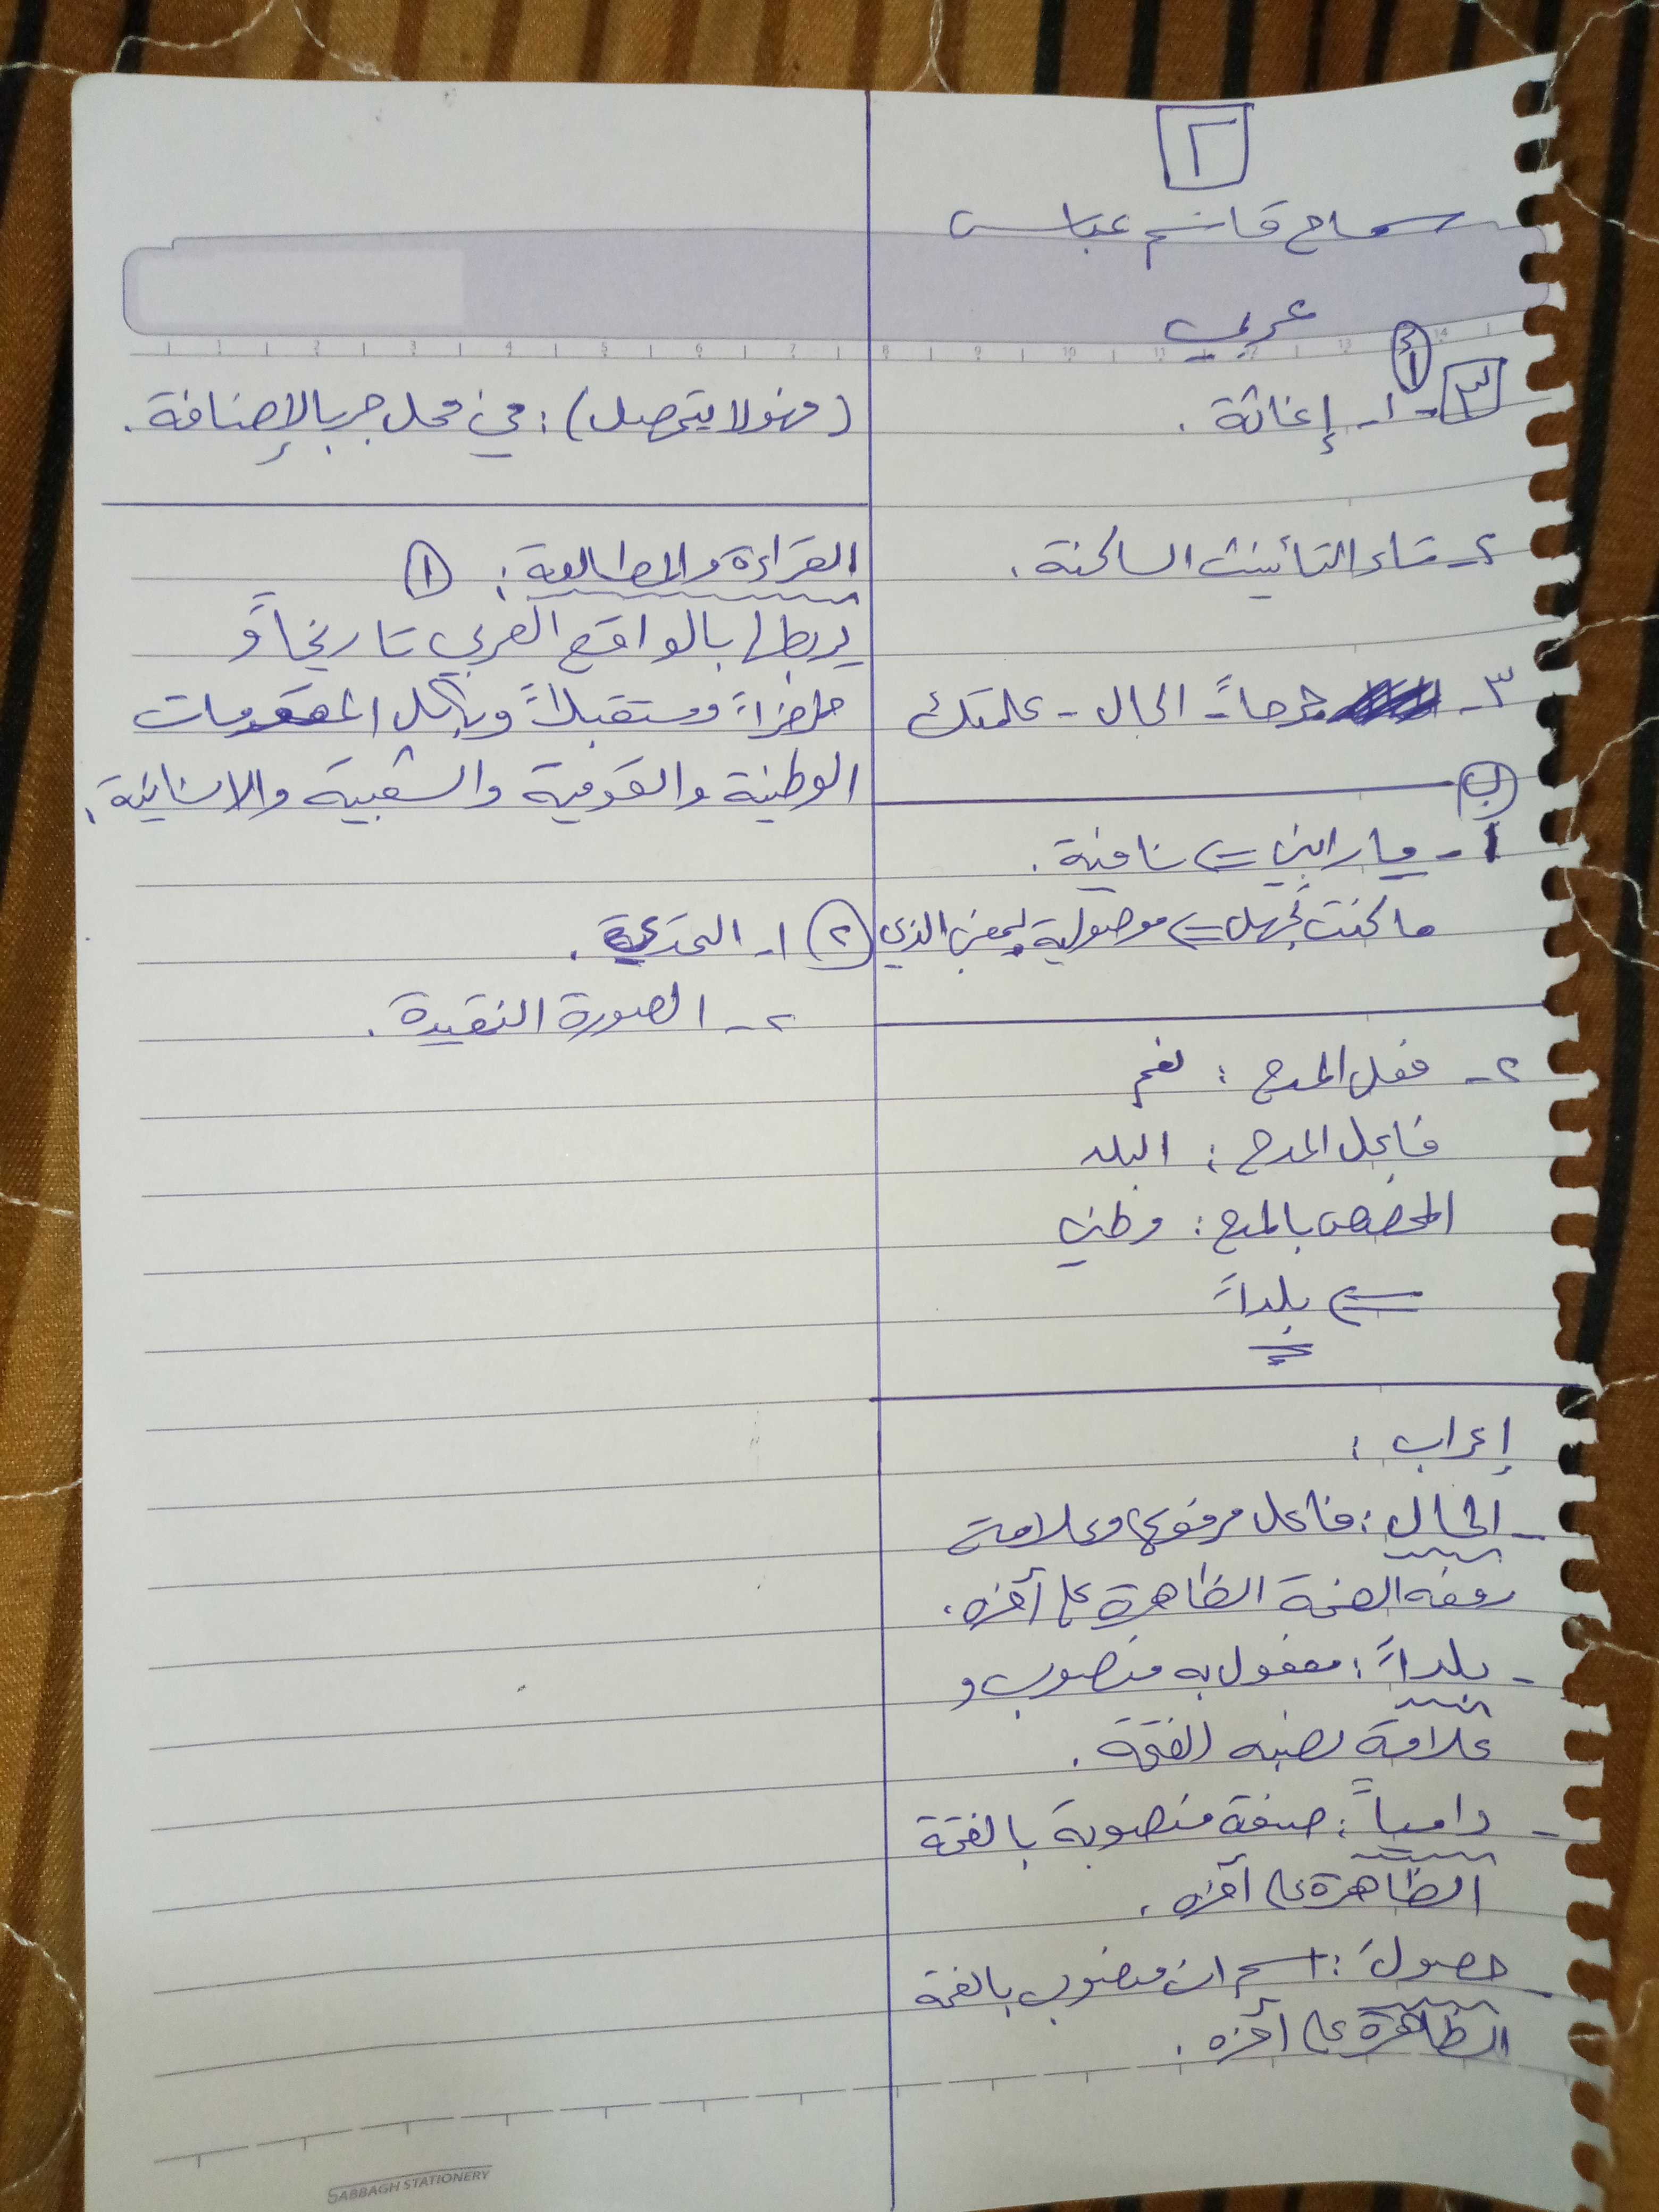 ٢
سماح قاسم عباس
عربي
٣ أ
١- إغاثة.
٢- تاء التأنيث الساكنة.
٣- جرحاً - الحال - علمتك
ب
١- ما رابني => نافية.
ما كنت تجهل => موصولية بمعنى الذي
٢- فعل المدح : نعم
فاعل المدح : البلد
المخصص بالمدح : وطني
=> بلداً
إعراب :
- الحال : فاعل مرفوع وعلامة
رفعه الضمة الظاهرة على آخره.
- بلداً : مفعول به منصوب و
علامة نصبه الفتحة.
- دامياً : صفة منصوبة بالفتحة
الظاهرة على آخره.
- حصول : اسم ان منصوب بالفتحة
الظاهرة على آخره.
(فهو لا يتحصل) : في محل جر بالإضافة.
القراءة والمطالعة : ١
يربطها بالواقع العربي تاريخاً و
حاضراً ومستقبلاً وبكل المقومات
الوطنية والقومية والشعبية والانسانية.
٢ ١-
٢- الصورة النقيدة.
1 2 3 4 5 6 7 8 9 10 11 12 13 14
SABBAGH STATIONERY